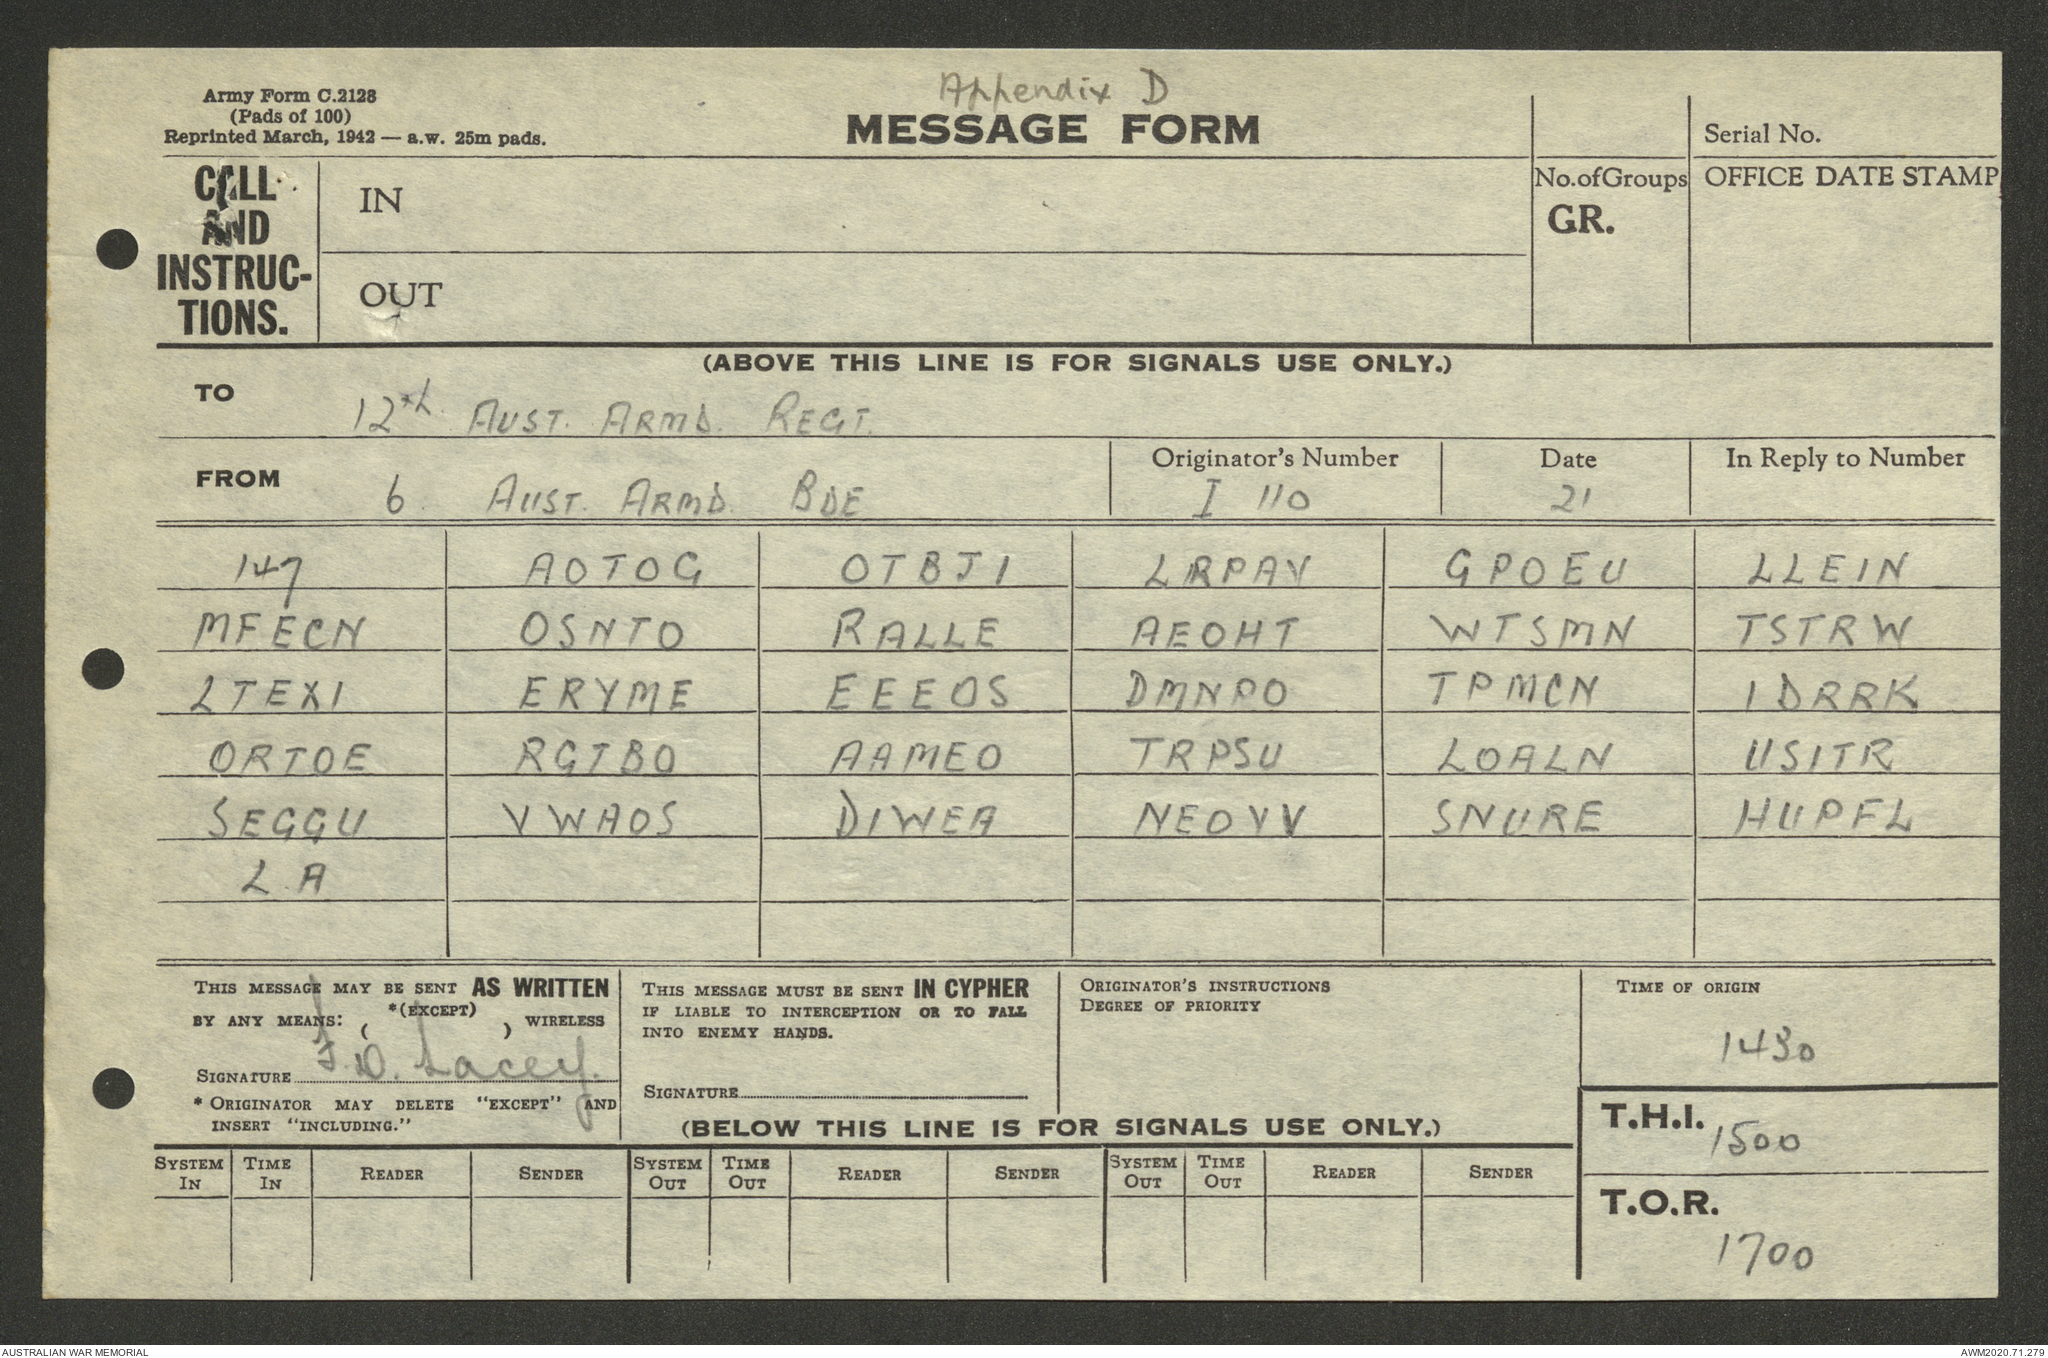 Appendix D
Army Form C.2128
(Pads of 100)
Reprinted March, 1942 — a.w. 25m pads.
MESSAGE FORM
Serial No.
CALL
AND
INSTRUC-
TIONS.
IN
OUT
No. of Groups
GR.
OFFICE DATE STAMP
(ABOVE THIS LINE IS FOR SIGNALS USE ONLY.)
TO 12th AUST. ARMD. REGT.
FROM 6 AUST. ARMD. BDE
Originator's Number
I 110
Date
21
In Reply to Number
147 AOTOG OTBJI LRPAV GPOEU LLEIN
MFECN OSNTO RALLE AEOHT WTSMN TSTRW
LTEXI ERYME EEEOS DMNPO TPMCN IDRRK
ORTOE RGTBO AAMEO TRPSU LOALN USITR
SEGGU VWAOS DIWEA NEOVV SNURE HUPFL
L.A
THIS MESSAGE MAY BE SENT AS WRITTEN
BY ANY MEANS: *(EXCEPT) ( ) WIRELESS
SIGNATURE F.D. Lacey.
* ORIGINATOR MAY DELETE "EXCEPT" AND
INSERT "INCLUDING."
THIS MESSAGE MUST BE SENT IN CYPHER
IF LIABLE TO INTERCEPTION OR TO FALL
INTO ENEMY HANDS.
SIGNATURE
ORIGINATOR'S INSTRUCTIONS
DEGREE OF PRIORITY
TIME OF ORIGIN
1430
(BELOW THIS LINE IS FOR SIGNALS USE ONLY.)
T.H.I. 1500
T.O.R.
1700
SYSTEM IN TIME IN READER SENDER SYSTEM OUT TIME OUT READER SENDER SYSTEM OUT TIME OUT READER SENDER
AUSTRALIAN WAR MEMORIAL
AWM2020.71.279